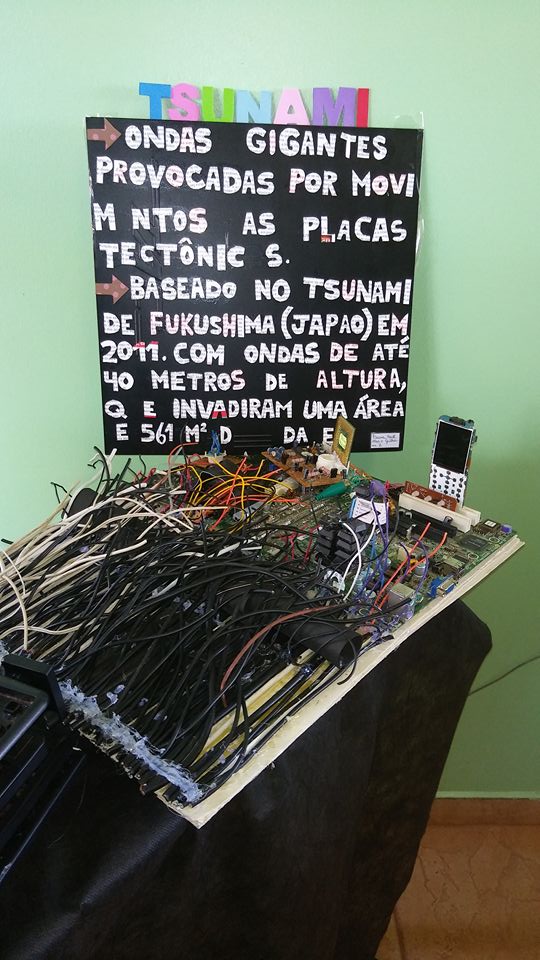 TSUNAMI
ONDAS GIGANTES
PROVOCADAS POR MOVI
M NTOS AS PLACAS
TECTÔNIC S.
BASEADO NO TSUNAMI
DE FUKUSHIMA (JAPAO) EM
2011. COM ONDAS DE ATÉ
40 METROS DE ALTURA,
Q E INVADIRAM UMA ÁREA
E 561 M² D DA E